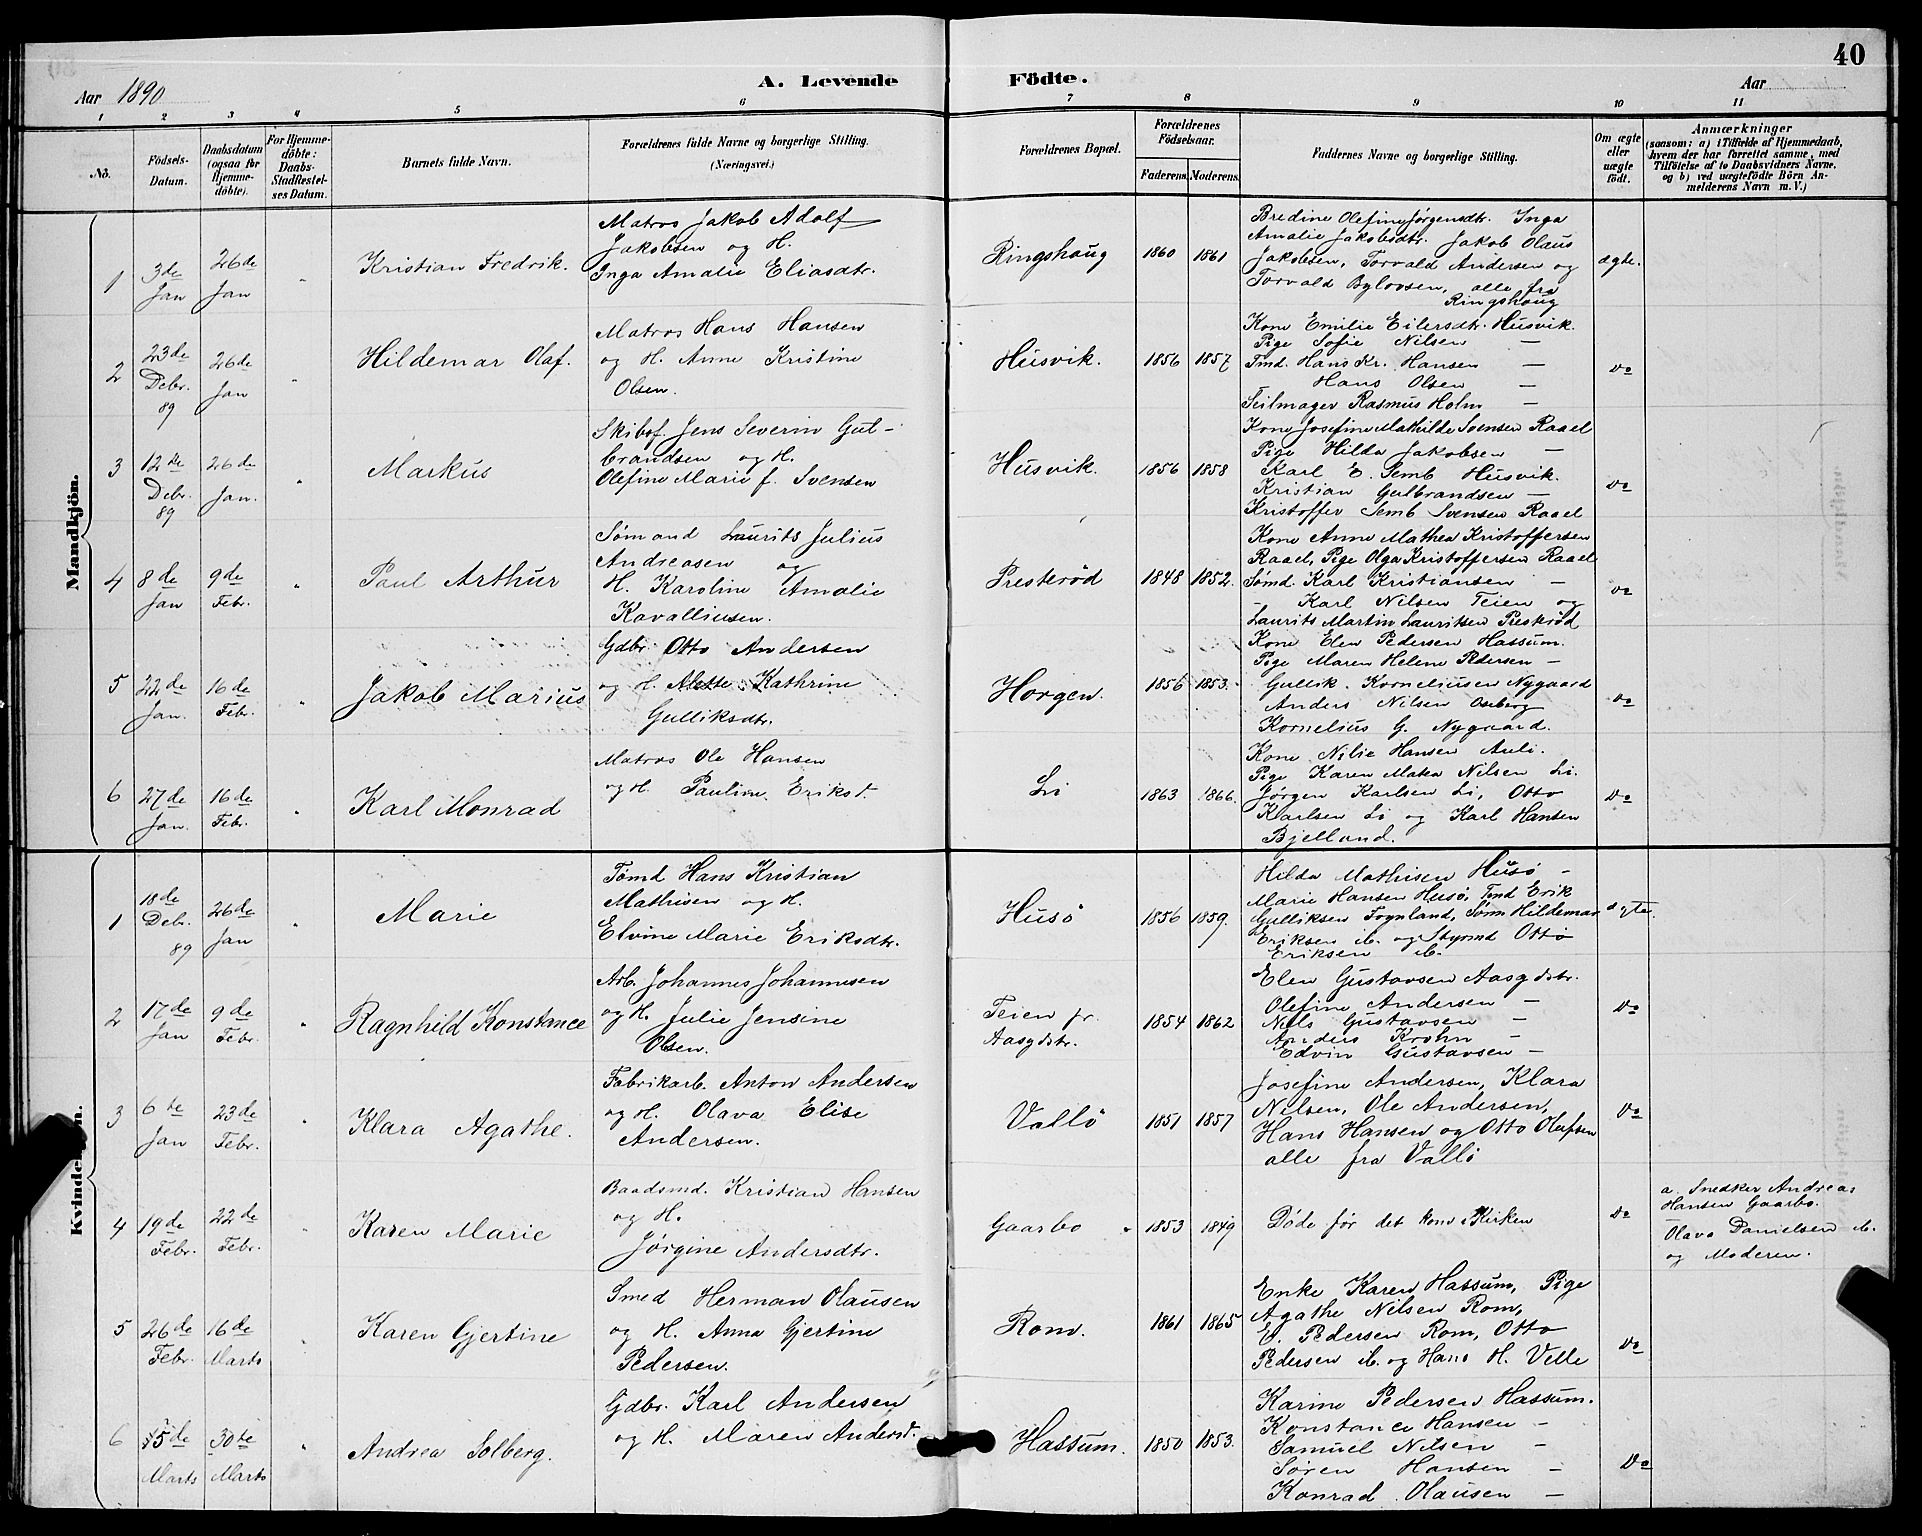 40
Aar 1890
A. Levende Födte.
Aar
1 2 3 4 5 6 7 8 9 10 11
No.
Födsels-Datum.
Daabsdatum (ogsaa for Hjemme-döbte).
For Hjemme-döbte: Daabs-Stadfæstel-ses Datum.
Barnets fulde Navn.
Forældrenes fulde Navne og borgerlige Stilling. (Næringsvei.)
Forældrenes Bopæl.
Forældrenes Födselsaar.
Faderens. Moderens.
Faddernes Navne og borgerlige Stilling.
Om ægte eller uægte födt.
Anmærkninger
(saasom: a) i Tilfælde af Hjemmedaab, hvem der har forrettet samme, med Tilföielse af to Daabsvidners Navne, og b) ved uægtefödte Börn An-melderens Navn m. V.)
Mandkjön.
1
3de Jan
26de Jan
Kristian Fredrik.
Matros Jakob Adolf
Jakobsen og H.
Inga Amalie Eliasdtr.
Ringshaug
1860 1861
Bredine Olefine Jørgensdtr. Inga
Amalie Jakobsdtr. Jakob Olaus
Jakobsen, Torvald Andersen og
Torvald Bylovsen, alle fra
Ringshaug
ægte.
2
23de Debr. 89
26de Jan
Hildemar Olaf.
Matros Hans Hansen
og H. Anne Kristine
Olsen.
Husvik.
1856 1857
Kone Emilie Eilersdtr. Husvik.
Pige Sofie Nilsen —
Tmd. Hans Kr. Hansen —
Hans Olsen —
Seilmager Rasmus Holm —
do
3
12te Debr. 89
26de Jan.
Markus
Skibsf. Jens Severin Gul-
brandsen og H.
Olefine Marie f. Svensen
Husvik.
1856 1858
Kone Josefine Mathilde Svensen Raael
Pige Hilda Jakobsen —
Karl E. Semb Husvik.
Kristian Gulbrandsen —
Kristoffer Semb Svensen Raael
do
4
8de Jan
9de Febr.
Paul Arthur
Sømand Laurits Julius
Andreasen og
H. Karoline Amalie
Kavalliusen.
Presterød
1848 1852.
Kone Anne Mathea Kristoffersen
Raael, Pige Olga Kristoffersen Raael
Sømd. Karl Kristiansen —
— Karl Nilsen Teien og
Laurits Martin Lauritsen Presterød
do
5
22de Jan.
16de Febr.
Jakob Marius
Gdbr. Otto Andersen
og H. Mette Kathrine
Gulliksdtr.
Horgen.
1856 1853.
Kone Elen Pedersen Hassum.
Pige Maren Helene Pedersen —
Gullik Korneliusen Nygaard
Anders Nilsen Oseberg
Kornelius G. Nygaard.
do
6
27de Jan.
16de Febr.
Karl Monrad
Matros Ole Hansen
og H. Pauline Erikst.
Li
1863 1866.
Kone Nilie Hansen Auli.
Pige Karen Matea Nilsen Li.
Jørgen Karlsen Li, Otto
Karlsen Li og Karl Hansen
Bjelland.
do
Kvindekjön.
1
18de Debr. 89
26de Jan
Marie
Tømd Hans Kristian
Mathisen og H.
Elvine Marie Eriksdtr.
Husö
1856 1859.
Hilda Mathisen Husö —
Marie Hansen Husö, Tmd Erik
Gulliksen Foynland, Sømm Hildemar
Eriksen ib. og Styrmd Otto
Eriksen ib.
ægte.
2
17de Jan
9de Febr.
Ragnhild Konstance
Arb. Johannes Johannesen
og H. Julie Jensine
Olsen.
Teien pr.
Aasgdstr.
1854 1862
Elen Gustavsen Aasgdstr.
Olefine Andersen —
Nils Gustavsen —
Anders Krohn —
Edvin Gustavsen —
do
3
6te Jan
23de Febr.
Klara Agathe.
Fabrikarb. Anton Andersen
og H. Olava Elise
Andersen.
Vallö
1851 1857
Josefine Andersen, Klara
Nilsen, Ole Andersen,
Hans Hansen og Otto Olafsen
alle fra Vallö
do
4
19de Febr.
22de Febr.
Karen Marie
Baadsmd. Kristian Hansen
og H.
Jørgine Andersdtr.
Gaarbo
1853 1849
Døde før det kom i Kirken
do
a. Snedker Andreas
Hansen Gaarbo.
Olava Danielsen ib.
og Moderen.
5
26de Febr.
16de Marts
Karen Gjertine
Smed Herman Olausen
og H. Anna Gjertine
Pedersen.
Rom.
1861 1865
Enke Karen Hassum, Pige
Agathe Nilsen Rom,
E. Pedersen Rom, Otto
Pedersen ib. og Hans H. Velle
do
6
5de Marts
30te Marts
Andrea Solberg.
Gdbr. Karl Andersen
og H. Maren Andersd.
Hassum.
1850 1853.
Karine Pedersen Hassum.
Konstance Hansen —
Samuel Nilsen —
Søren Hansen —
Konrad Olausen —
do